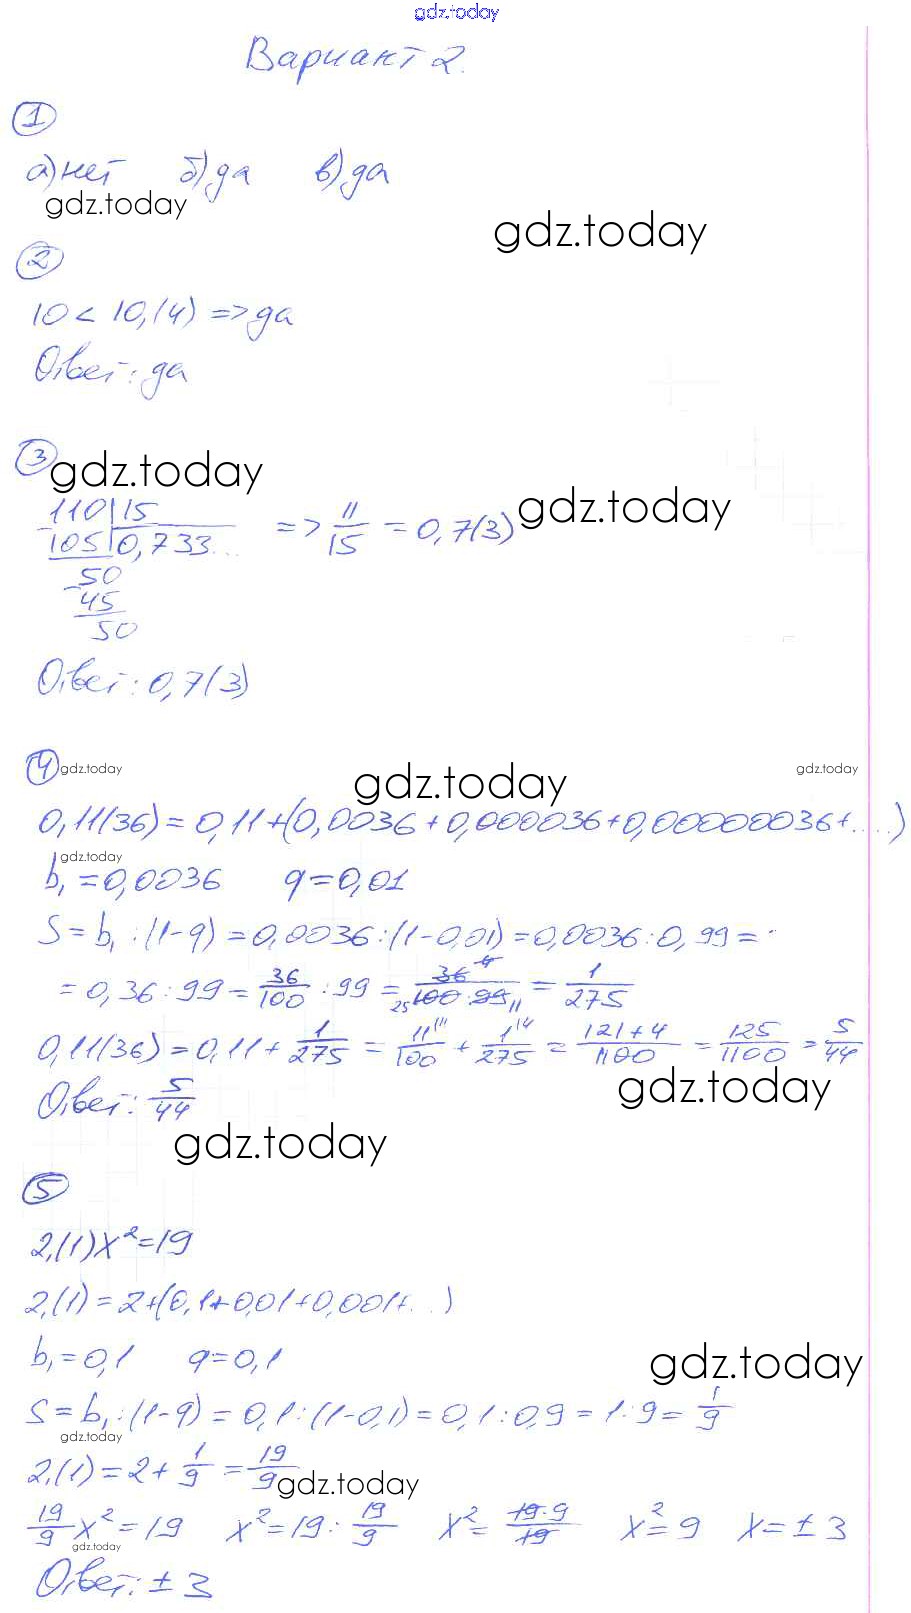 gdz.today
Вариант 2.
1
а) нет б) да в) да
gdz.today
gdz.today
2
10 < 10,(4) => да
Ответ: да
3 gdz.today
gdz.today
110 | 15
105 | 0,733...
50
45
50
=> 11/15 = 0,7(3)
Ответ: 0,7(3)
4 gdz.today gdz.today gdz.today
0,11(36) = 0,11 + (0,0036 + 0,000036 + 0,00000036 + ....)
gdz.today
b₁ = 0,0036 q = 0,01
S = b₁ : (1-q) = 0,0036 : (1-0,01) = 0,0036 : 0,99 =
= 0,36 : 99 = 36/100 : 99 = 36 4/25 100 · 99 11 = 1/275
0,11(36) = 0,11 + 1/275 = 11 \11/100 + 1 \4/275 = 121+4/1100 = 125/1100 = 5/44
Ответ: 5/44
gdz.today
gdz.today
5
2,(1)x² = 19
2,(1) = 2 + (0,1 + 0,01 + 0,001 + ...)
b₁ = 0,1 q = 0,1
gdz.today
S = b₁ : (1-q) = 0,1 : (1-0,1) = 0,1 : 0,9 = 1 : 9 = 1/9
gdz.today
2,(1) = 2 + 1/9 = 19/9
gdz.today
19/9 x² = 19 x² = 19 : 19/9 x² = 19·9/19 x² = 9 x = ± 3
gdz.today
Ответ: ± 3